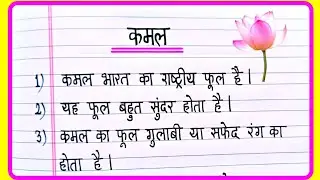 कमल
1) कमल भारत का राष्ट्रीय फूल है।
2) यह फूल बहुत सुंदर होता है।
3) कमल का फूल गुलाबी या सफेद रंग का
होता है।